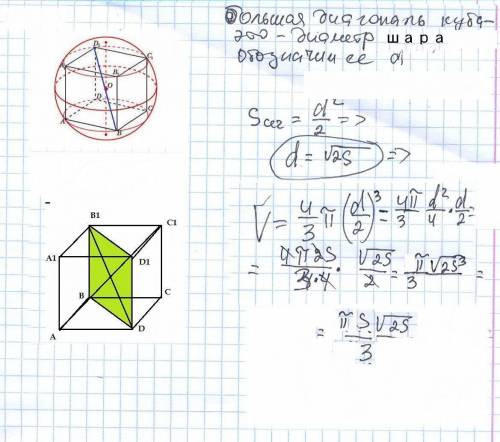 Большая диагональ куба-
это - диаметр шара
обозначим её d
Sсег = d²/2 =>
d = √2S =>
V = 4/3 π (d/2)³ = 4π/3 · d²/4 · d/2 =
= 4π2S/3·4 · √2S/2 = π√2S³/3 =
= πS√2S/3
D1
C1
A1
B1
O
D
C
A
B
B1
C1
A1
D1
B
C
A
D